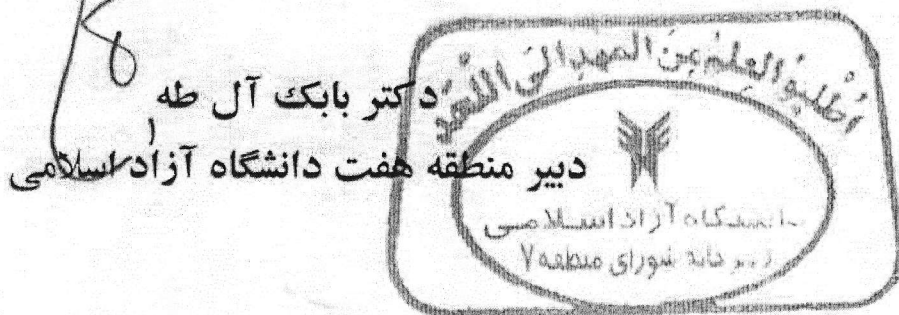 دکتر بابک آل طه
دبیر منطقه هفت دانشگاه آزاد اسلامی
اطلبوا العلم من المهد الی اللحد
دانشگاه آزاد اسلامی
دبیرخانه شورای منطقه ۷